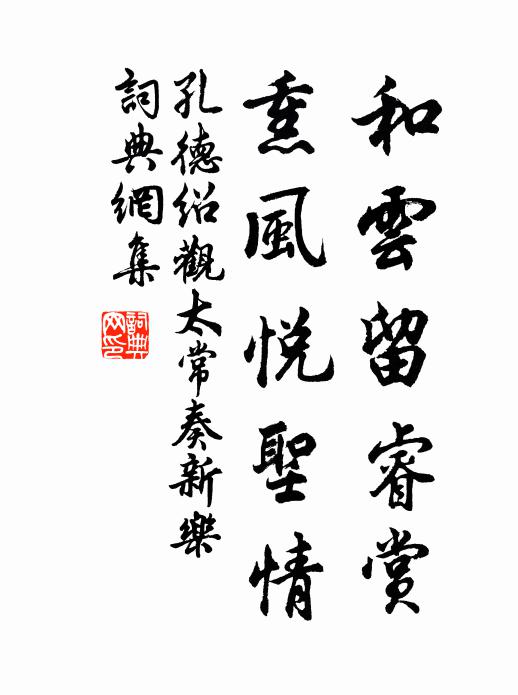 和雲留睿賞
熏風悦聖情
孔德紹觀太常奏新樂
詞典網集
詞典網印